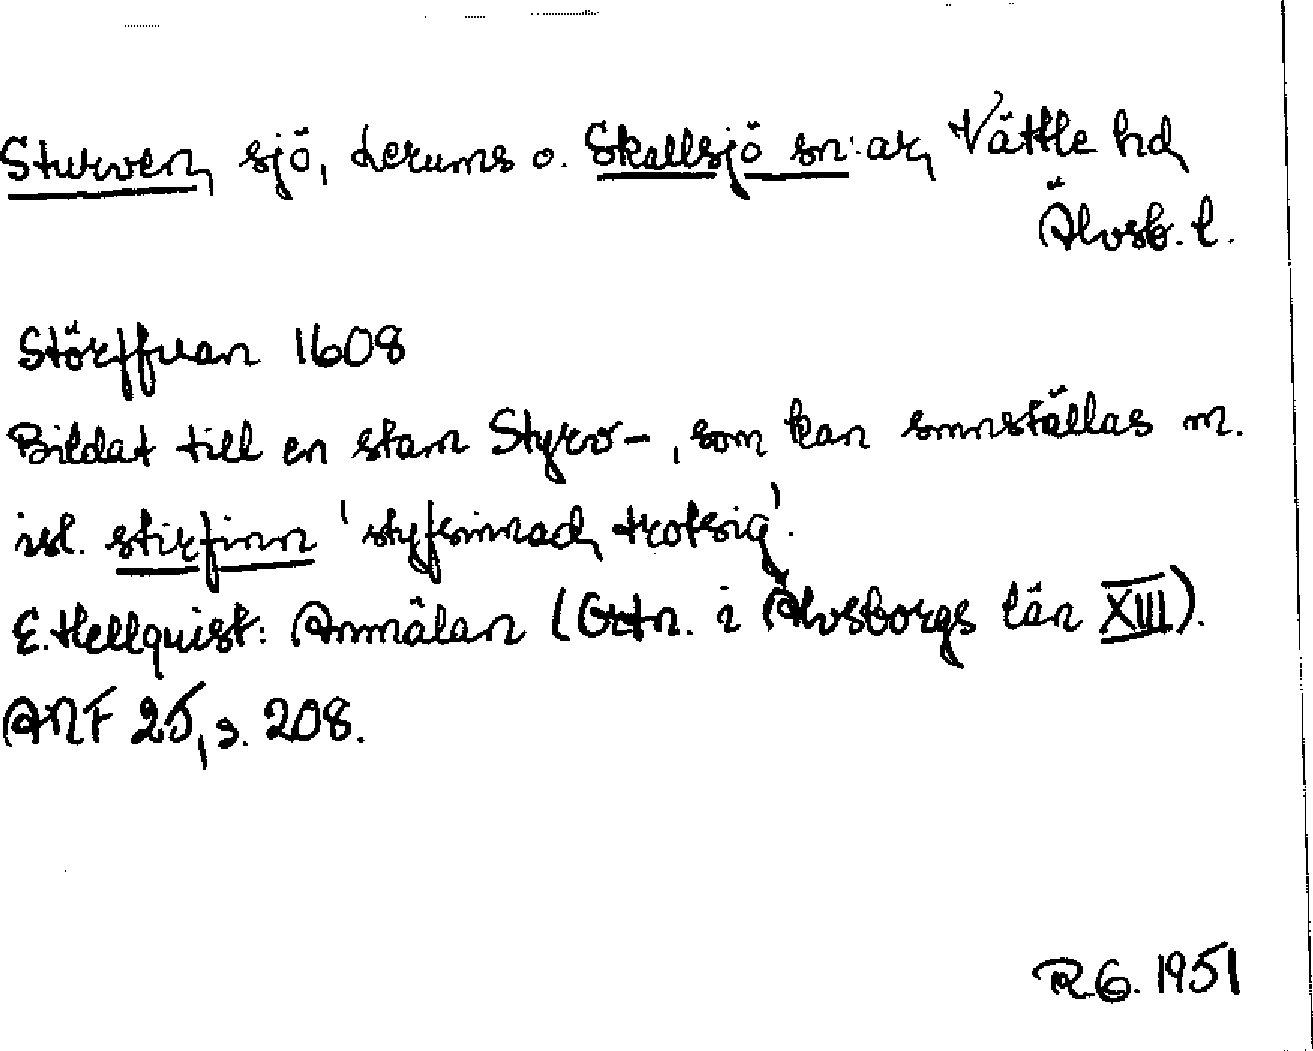 Sturven, sjö, Lerums o. Skallsjö sn:ar, Vättle hd
Älvsb. l.
Störffuan 1608
Bildat till en stam Styrv-, som kan smnställas m.
isl. stirfinn 'styfsinnad, trotsig'.
E. Hellquist: Anmälan (Ortn. i Älvsborgs län XIII).
ANF 25, s. 208.
R.G. 1951